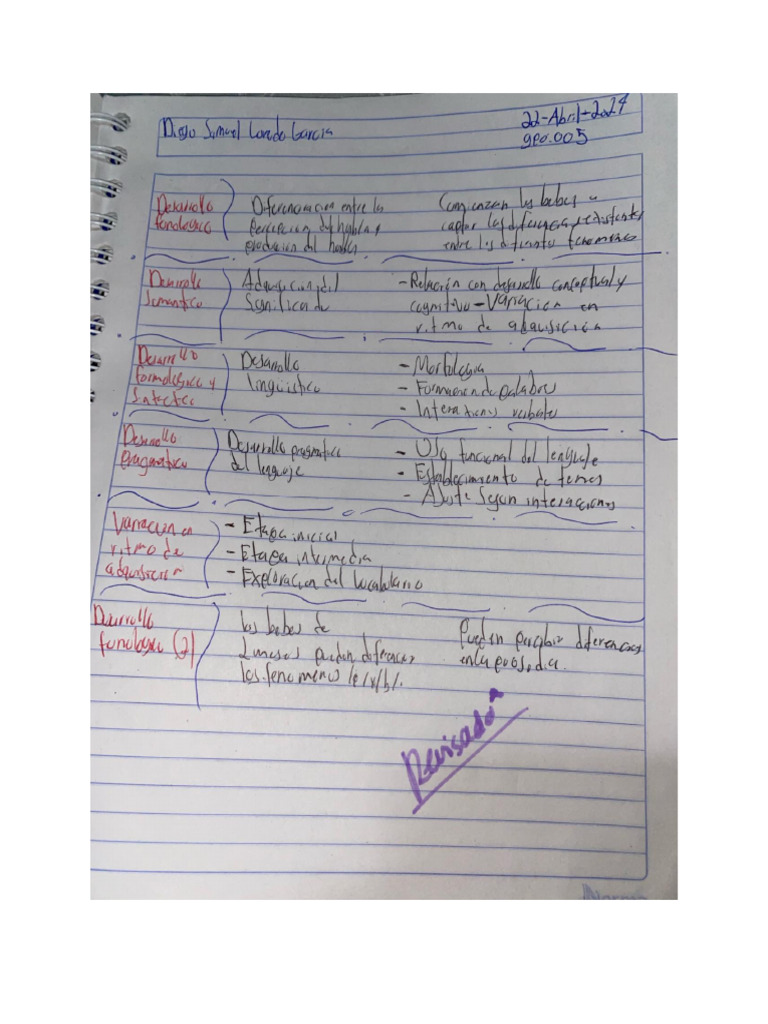 Diego Samuel Loredo Garcia
22-Abril-2024
gpo.005
Desarrollo
fonologico
Diferenciacion entre la
percepcion del habla y
produccion del habla
Comienzan los bebes a
captar las diferencias existentes
entre los diferentes fenomenos
Desarrollo
Semantico
Adquisicion del
Significado
- Relación con desarrollo conceptual y
cognitivo - Variacion en
ritmo de adquisición
Desarrollo
formologico y
Sintactico
Desarrollo
lingüistico
- Morfologia
- Formacion de palabras
- Interactions verbales
Desarrollo
Pragmatico
Desarrollo pragmatico
del lenguaje
- Uso funcional del lenguaje
- Establecimiento de temas
- Ajuste Segun interacciones
Variacion en
ritmo de
adquisición
- Etapa inicial
- Etapa intermedia
- Exploracion del Vocabulario
Desarrollo
fonologico (2)
los bebes de
2 meses pueden diferenciar
los fenomenos /p/ y /b/.
Pueden percibir diferencias
en la prosodia.
Revisado
Norma